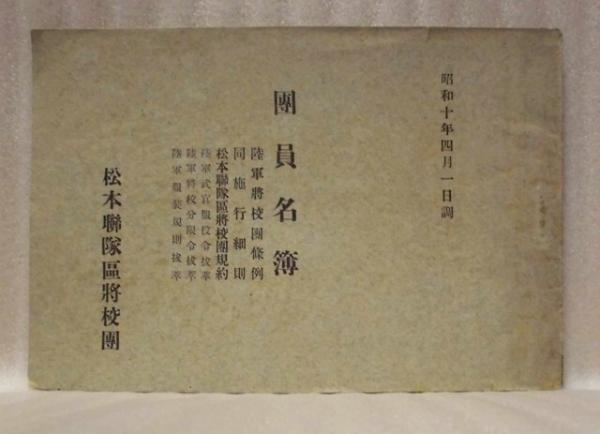 昭和十年四月一日調
團員名簿
陸軍將校團條例
同施行細則
松本聯隊區將校團規約
陸軍武官服役令拔萃
陸軍將校分限令拔萃
陸軍服裝規則拔萃
松本聯隊區將校團